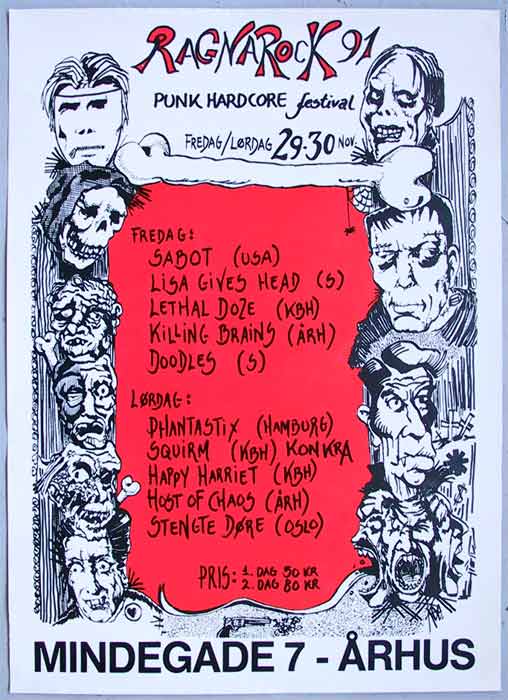 RAGNAROCK 91
PUNK HARDCORE festival
FREDAG/LØRDAG 29-30 NOV.
FREDAG:
SABOT (USA)
LISA GIVES HEAD (S)
LETHAL DOZE (KBH)
KILLING BRAINS (ÅRH)
DOODLES (S)
LØRDAG:
PHANTASTIX (HAMBURG)
SQUIRM (KBH) KONKRA
HAPPY HARRIET (KBH)
HOST OF CHAOS (ÅRH)
STENGTE DØRE (OSLO)
PRIS: 1. DAG 50 KR
2. DAG 80 KR
MINDEGADE 7 - ÅRHUS